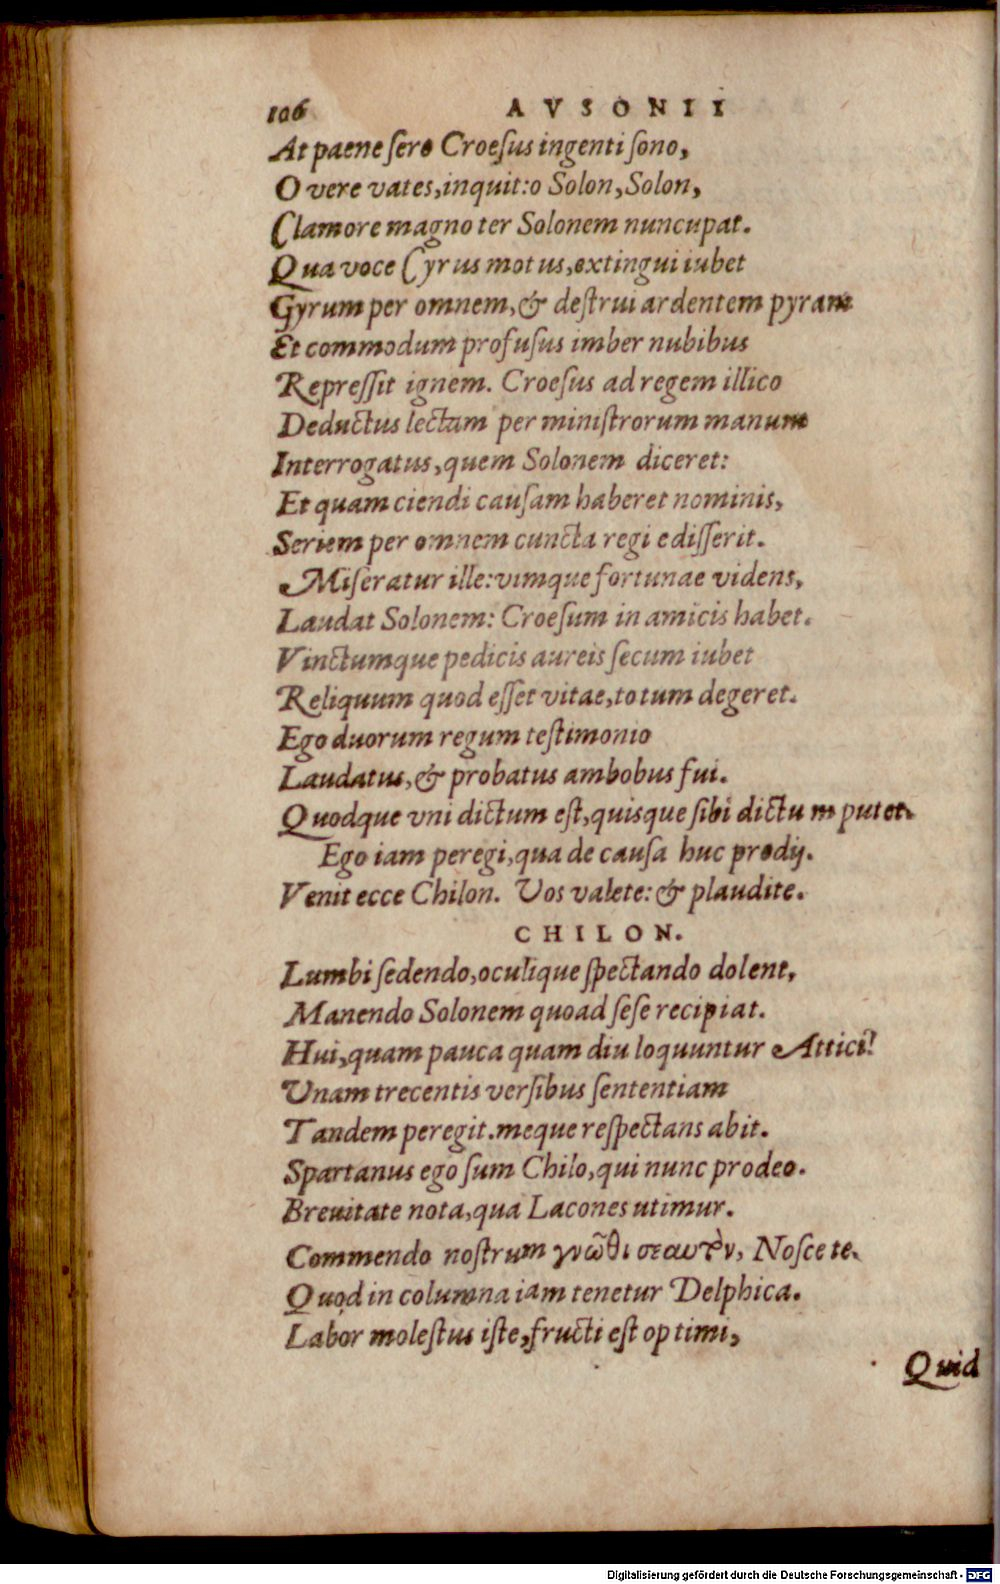 106 AVSONII
At paene sero Croesus ingenti sono,
O vere vates, inquit: o Solon, Solon,
Clamore magno ter Solonem nuncupat.
Qua voce Cyrus motus, extingui iubet
Gyrum per omnem, & destrui ardentem pyram
Et commodum profusus imber nubibus
Repressit ignem. Croesus ad regem illico
Deductus lectam per ministrorum manum
Interrogatus, quem Solonem diceret:
Et quam ciendi causam haberet nominis,
Seriem per omnem cuncta regi edisserit.
Miseratur ille: vimque fortunae videns,
Laudat Solonem: Croesum in amicis habet.
Vinctumque pedicis aureis secum iubet
Reliquum quod esset vitae, totum degeret.
Ego duorum regum testimonio
Laudatus, & probatus ambobus fui.
Quodque vni dictum est, quisque sibi dictum putet.
Ego iam peregi, qua de causa huc prodij.
Venit ecce Chilon. Vos valete: & plaudite.
CHILON.
Lumbi sedendo, oculique spectando dolent,
Manendo Solonem quoad sese recipiat.
Hui, quam pauca quam diu loquuntur Attici!
Unam trecentis versibus sententiam
Tandem peregit. meque respectans abit.
Spartanus ego sum Chilo, qui nunc prodeo.
Brevitate nota, qua Lacones utimur.
Commendo nostrum γνῶθι σεαυτὸν, Nosce te.
Quod in columna iam tenetur Delphica.
Labor molestus iste, fructi est optimi,
Quid
Digitalisierung gefördert durch die Deutsche Forschungsgemeinschaft - DFG